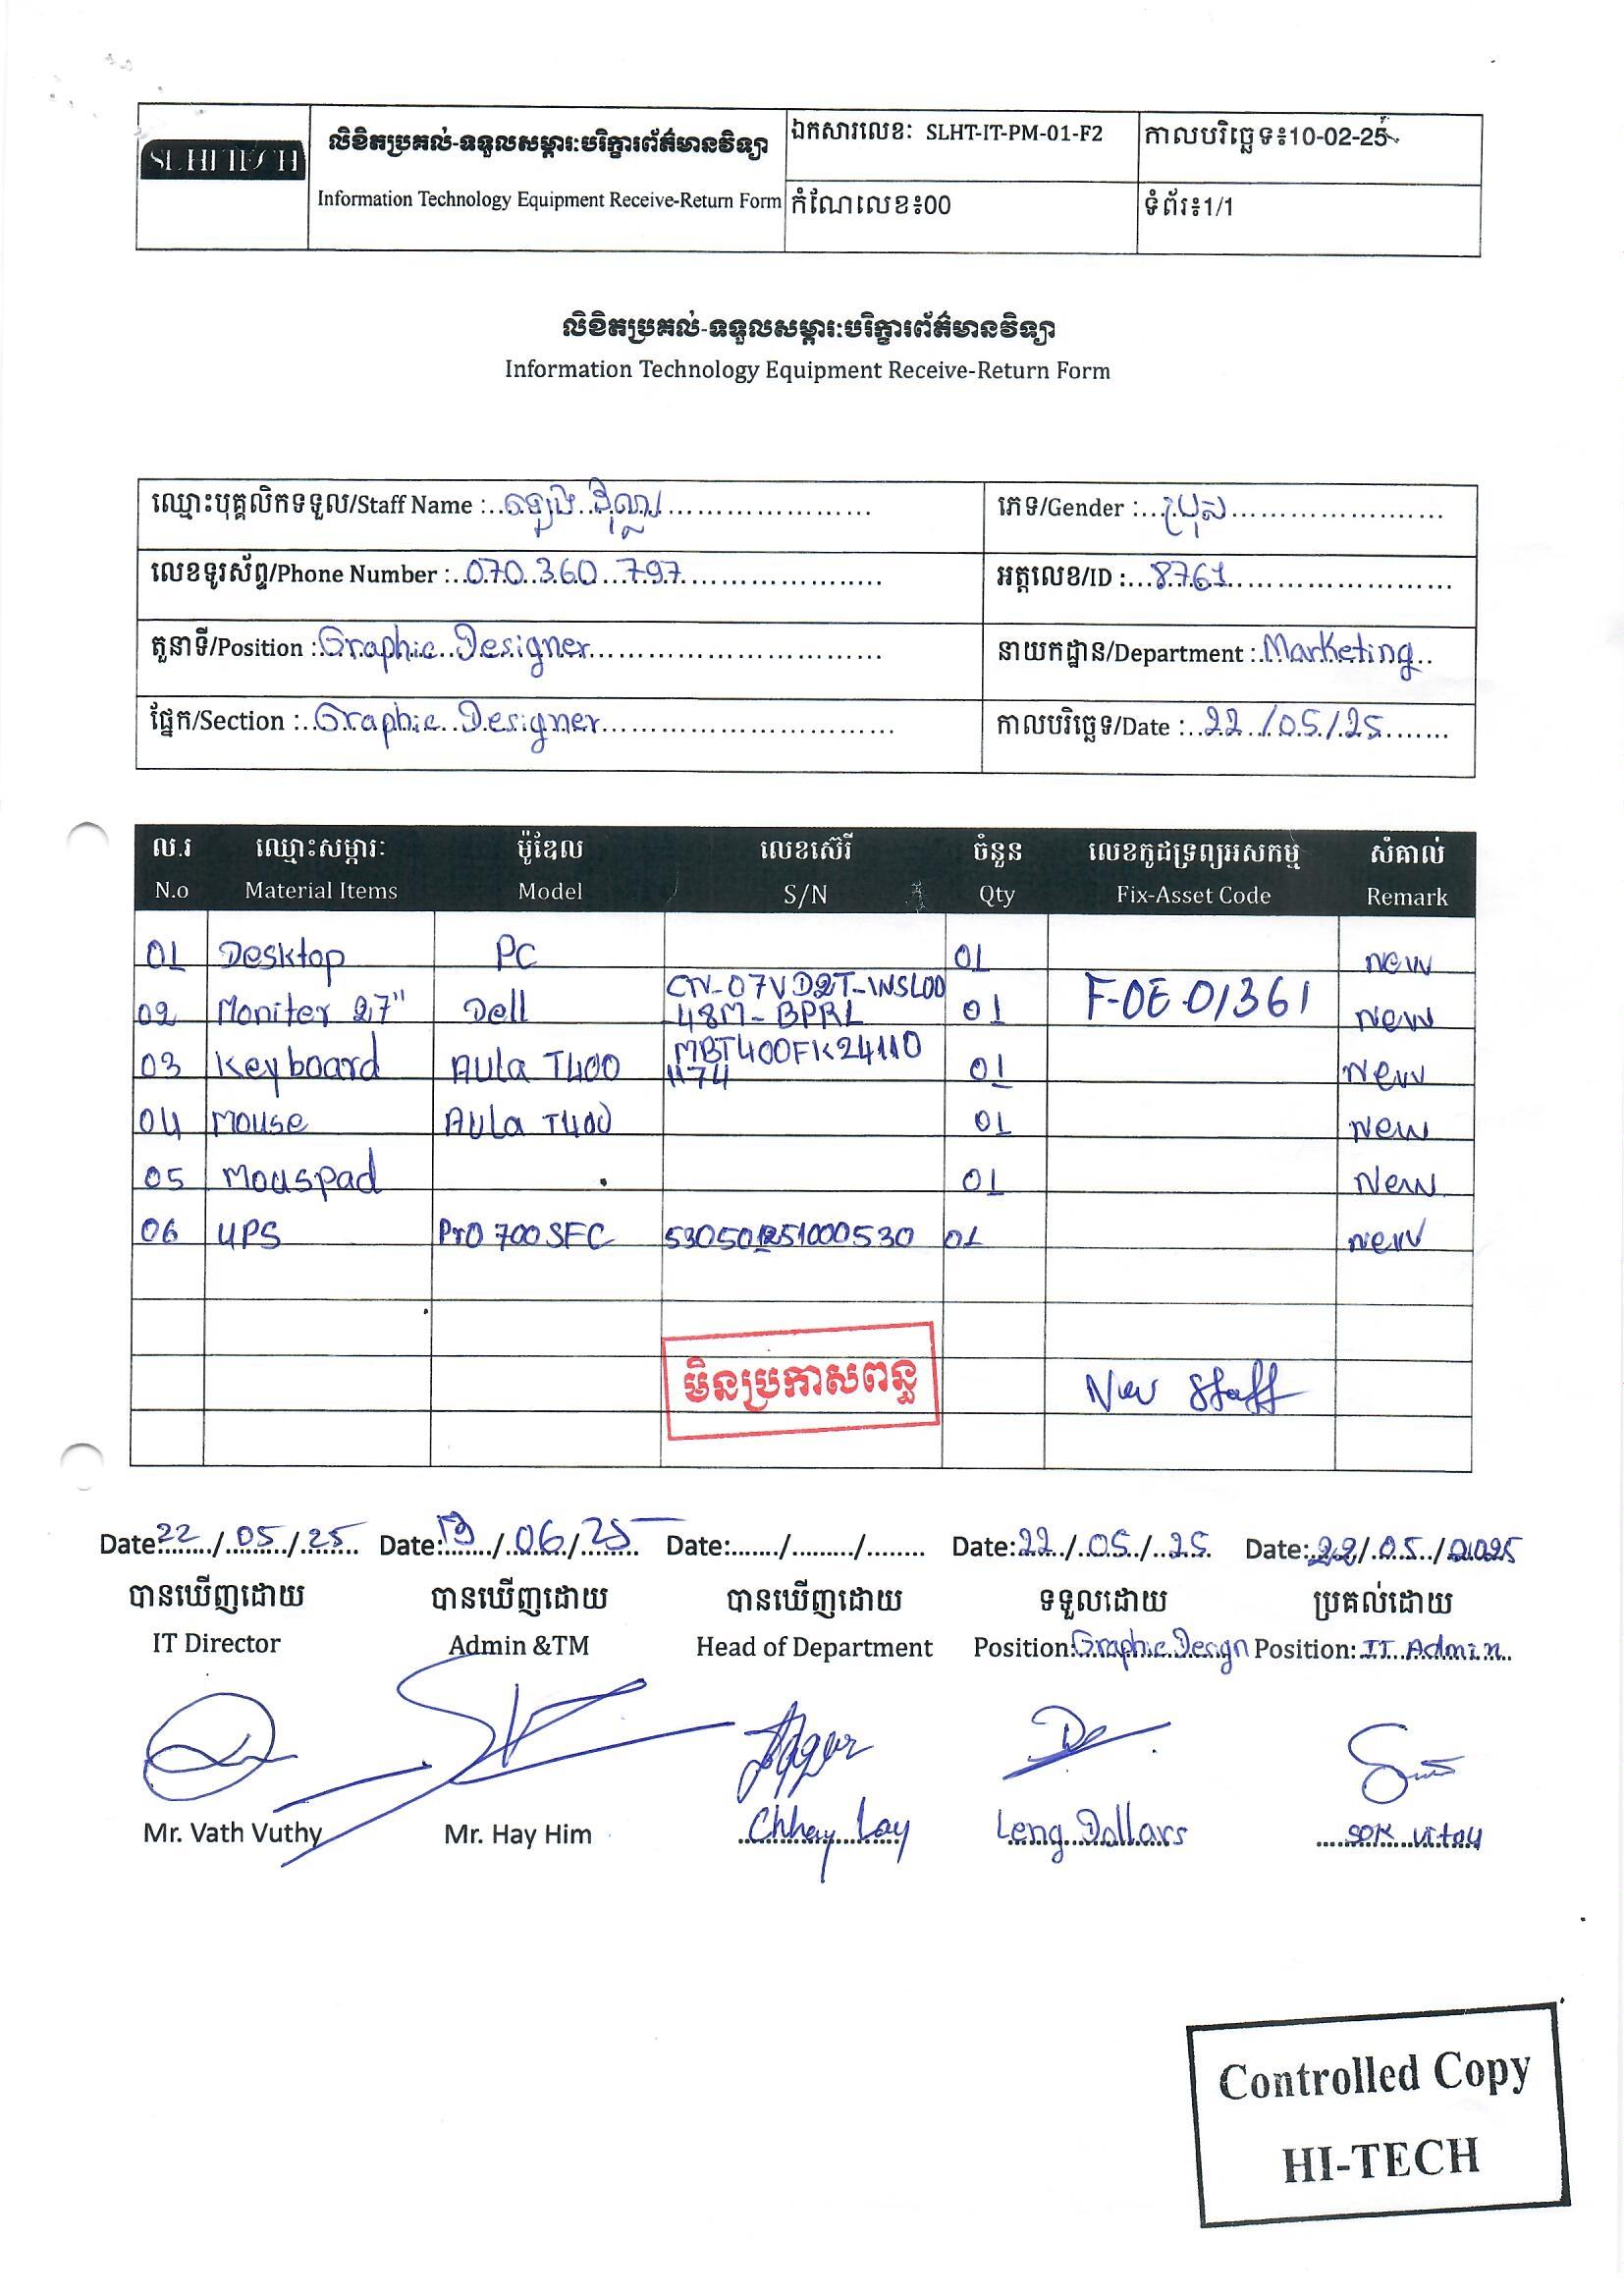 SL HI TECH
លិខិតប្រគល់-ទទួលសម្ភារៈបរិក្ខារព័ត៌មានវិទ្យា
Information Technology Equipment Receive-Return Form
ឯកសារលេខៈ SLHT-IT-PM-01-F2
កាលបរិច្ឆេទ៖10-02-25
កំណែលេខ៖00
ទំព័រ៖1/1
លិខិតប្រគល់-ទទួលសម្ភារៈបរិក្ខារព័ត៌មានវិទ្យា
Information Technology Equipment Receive-Return Form
ឈ្មោះបុគ្គលិកទទួល/Staff Name : ឡេង ដុល្លា
ភេទ/Gender : ប្រុស
លេខទូរស័ព្ទ/Phone Number : 070 360 797
អត្តលេខ/ID : 8761
តួនាទី/Position : Graphic Designer
នាយកដ្ឋាន/Department : Marketing
ផ្នែក/Section : Graphic Designer
កាលបរិច្ឆេទ/Date : 22/05/25
ល.រ ឈ្មោះសម្ភារៈ ម៉ូឌែល លេខស៊េរី ចំនួន លេខកូដទ្រព្យអសកម្ម សំគាល់
N.o Material Items Model S/N Qty Fix-Asset Code Remark
01 Desktop PC 01 new
02 Moniter 27" Dell CN-07VD2T-WSL00 48M-BPRL 01 F-OE-01361 New
03 Keyboard AULA T400 MBT400FK24110 1174 01 New
04 Mouse AULA T400 01 new
05 Mouspad 01 New
06 UPS PrO 700 SFC 01 new
មិនប្រកាសពន្ធ
New Staff
Date: 22/05/25 Date: 19/06/25 Date:....../......../........ Date: 22/05/25 Date: 22/05/2025
បានឃើញដោយ បានឃើញដោយ បានឃើញដោយ ទទួលដោយ ប្រគល់ដោយ
IT Director Admin &TM Head of Department Position: Graphic Design Position: IT Admin
Mr. Vath Vuthy Mr. Hay Him Chhay Lay Leng Dollars SOK Vitou
Controlled Copy
HI-TECH